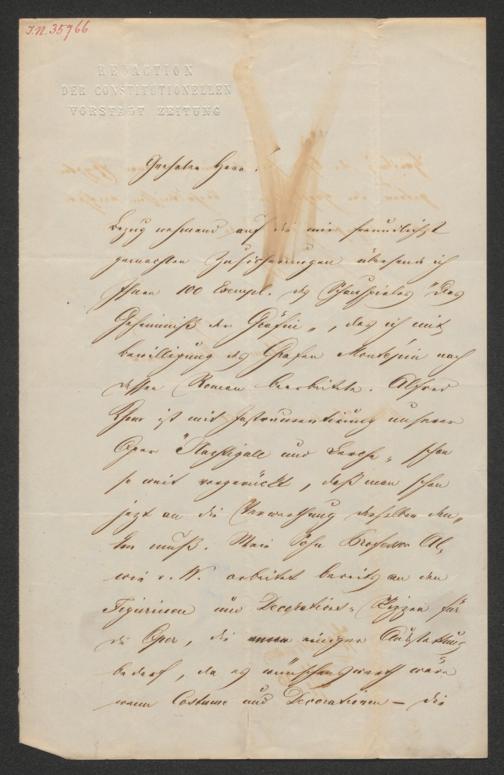 I.N. 35966
REDACTION
DER CONSTITUTIONELLEN
VORSTADT ZEITUNG
Geehrter Herr.
Bezug nehmend auf die mir freundlichst
gemachten Zusicherungen übersende ich
Ihnen 100 Exempl. des Schauspieles "Das
Geheimniß der Gräfin", das ich mit
Bewilligung des Grafen Montepin nach
dessen Roman bearbeitete. Alfred
ist mit Instrumentirung unserer
Oper "Nachtigall und Lerche" schon
so weit vorgerückt, daß man schon
jezt an die Verwerthung derselben den-
ken muß. Mein Sohn Professor Al-
win v. W. arbeitet bereits an den
Figurinen und Decorations-Skizzen für
die Oper, die einiger Ausstattung
bedarf, da es wünschenswerth wäre
wenn Costume und Decorationen – die